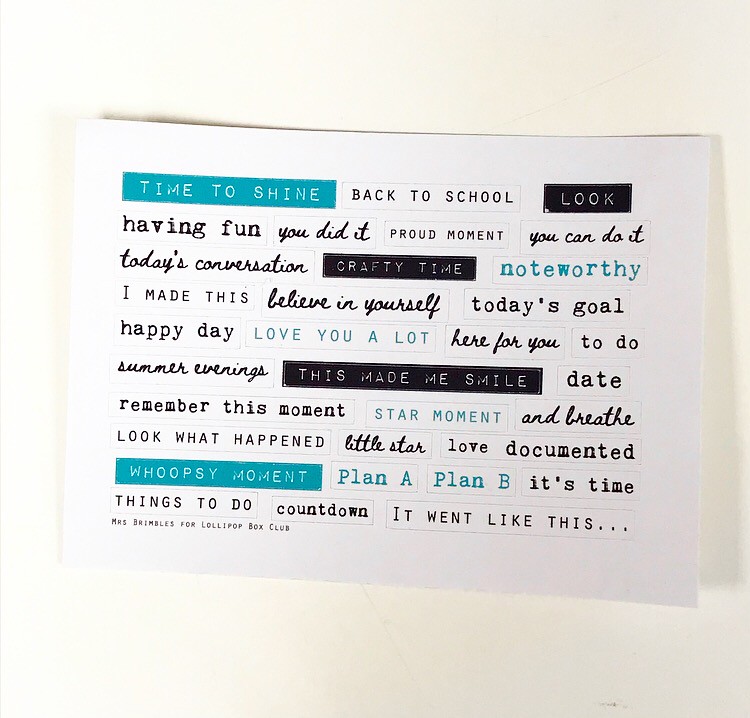 TIME TO SHINE BACK TO SCHOOL LOOK
having fun you did it PROUD MOMENT you can do it
today's conversation CRAFTY TIME noteworthy
I MADE THIS believe in yourself today's goal
happy day LOVE YOU A LOT here for you to do
summer evenings THIS MADE ME SMILE date
remember this moment STAR MOMENT and breathe
LOOK WHAT HAPPENED little star love documented
WHOOPSY MOMENT Plan A Plan B it's time
THINGS TO DO countdown IT WENT LIKE THIS...
MRS BRIMBLES FOR LOLLIPOP BOX CLUB